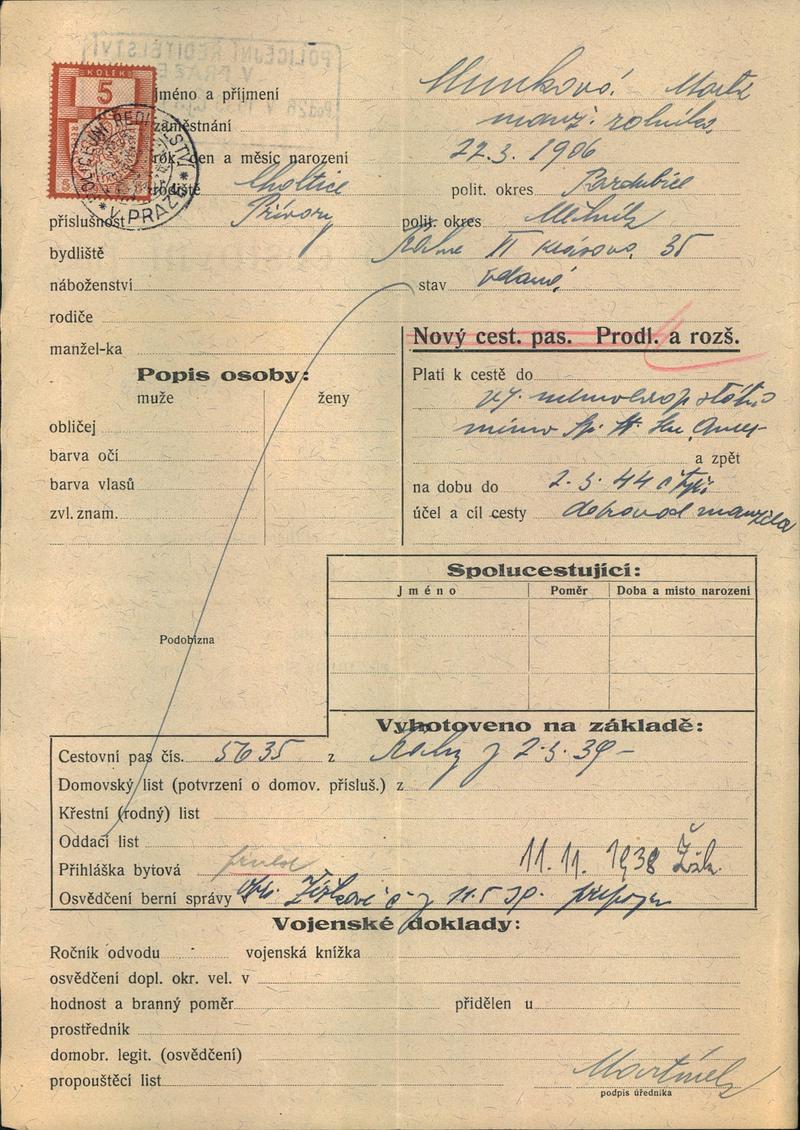 POLICEJNÍ ŘEDITELSTVÍ
V PRAZE
KOLEK
5
POLICEJNÍ ŘEDITELSTVÍ
* V PRAZE *
jméno a příjmení Munková Marta
zaměstnání manž. rolníka
rok, den a měsíc narození 22.3. 1906
rodiště Choltice polit. okres Pardubice
příslušnost Přívory polit. okres Mělník
bydliště XI 35
náboženství stav vdaná
rodiče
manžel-ka
Nový cest. pas. Prodl. a rozš.
Popis osoby:
muže ženy
obličej
barva očí
barva vlasů
zvl. znam.
Platí k cestě do
mimo
a zpět
na dobu do 2.5.44
účel a cíl cesty doprovod manžela
Spolucestující:
Jméno Poměr Doba a místo narození
Podobizna
Vyhotoveno na základě:
Cestovní pas čís. 5635 z 2.5.39
Domovský list (potvrzení o domov. přísluš.) z
Křestní (rodný) list
Oddací list
Přihláška bytová 11.11. 1938 Žik.
Osvědčení berní správy
Vojenské doklady:
Ročník odvodu vojenská knížka
osvědčení dopl. okr. vel. v
hodnost a branný poměr přidělen u
prostředník
domobr. legit. (osvědčení)
propouštěcí list
podpis úředníka